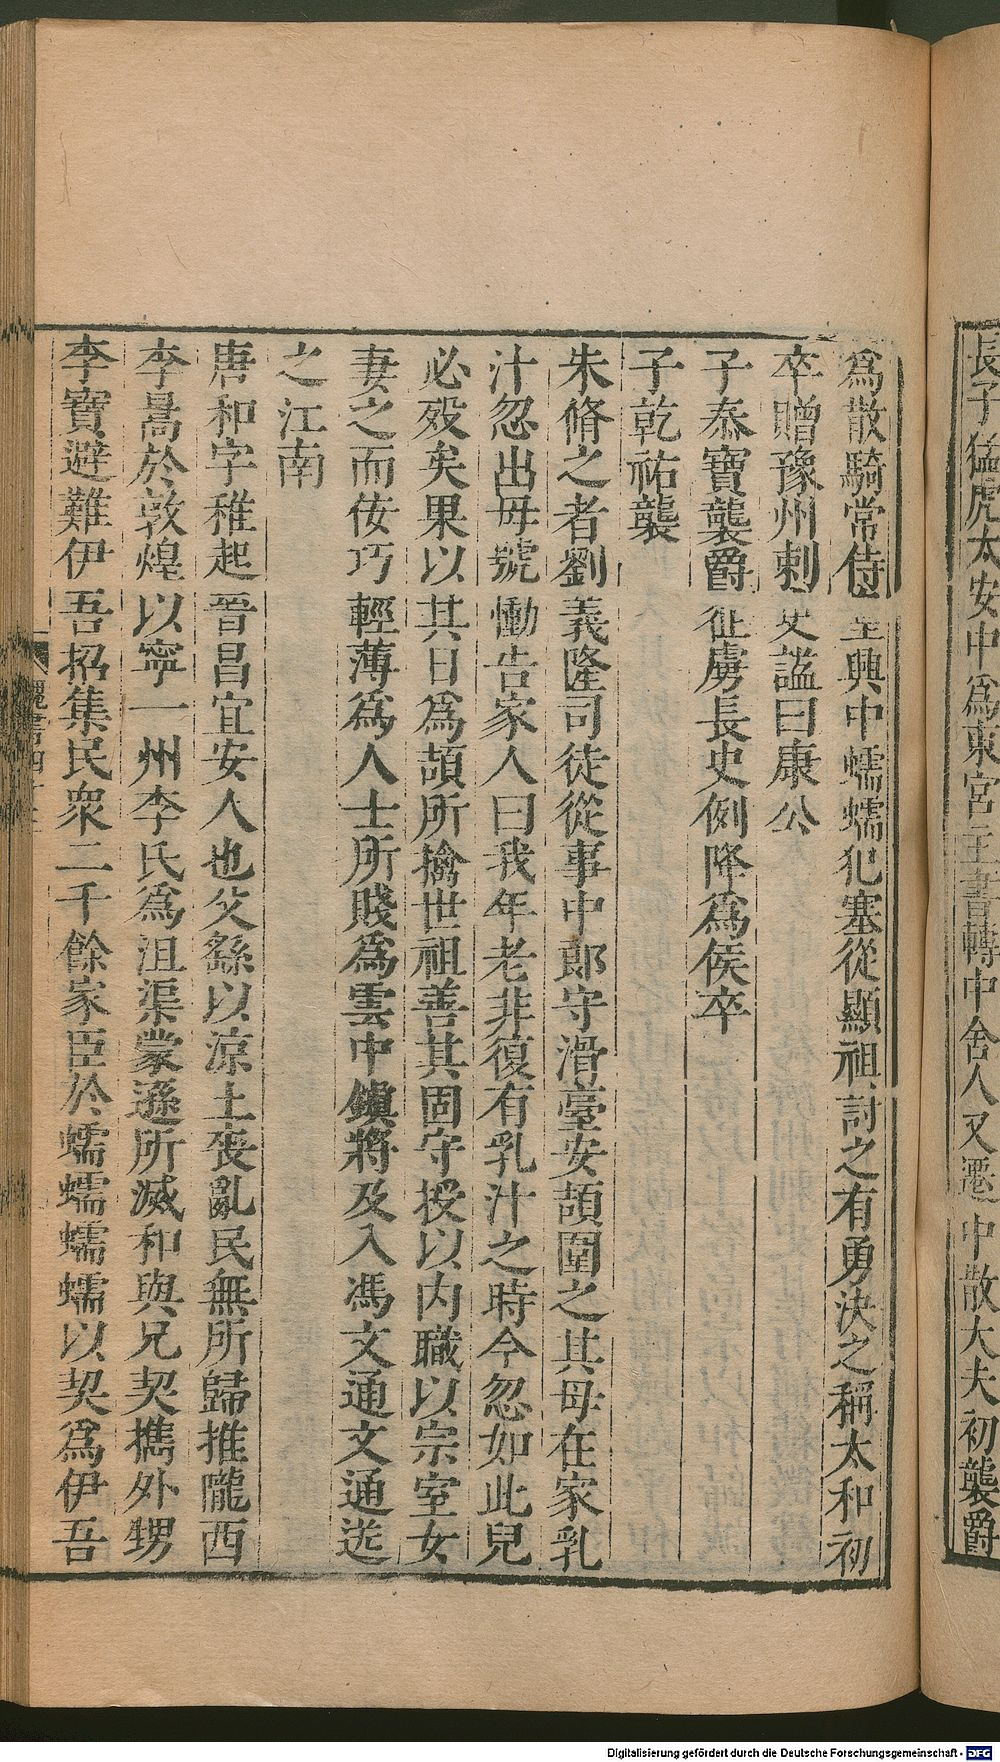 長子猛虎太安中爲東宮主書轉中舍人又遷中散大夫初襲爵
爲散騎常侍皇興中蠕蠕犯塞從顯祖討之有勇決之稱太和初
卒贈豫州刺史謚曰康公
子泰寶襲爵征虜長史例降爲侯卒
子乾祐襲
朱脩之者劉義隆司徒從事中郎守滑臺安頡圍之其母在家乳
汁忽出母號慟告家人曰我年老非復有乳汁之時今忽如此兒
必殁矣果以其日爲頡所擒世祖善其固守授以内職以宗室女
妻之而佞巧輕薄爲人士所賤爲雲中鎮將及入馮文通文通送
之江南
唐和字稚起晉昌宜安人也父繇以涼土喪亂民無所歸推隴西
李暠於敦煌以寧一州李氏爲沮渠蒙遜所滅和與兄契攜外甥
李寶避難伊吾招集民衆二千餘家臣於蠕蠕蠕蠕以契爲伊吾
魏書四十三
Digitalisierung gefördert durch die Deutsche Forschungsgemeinschaft - DFG